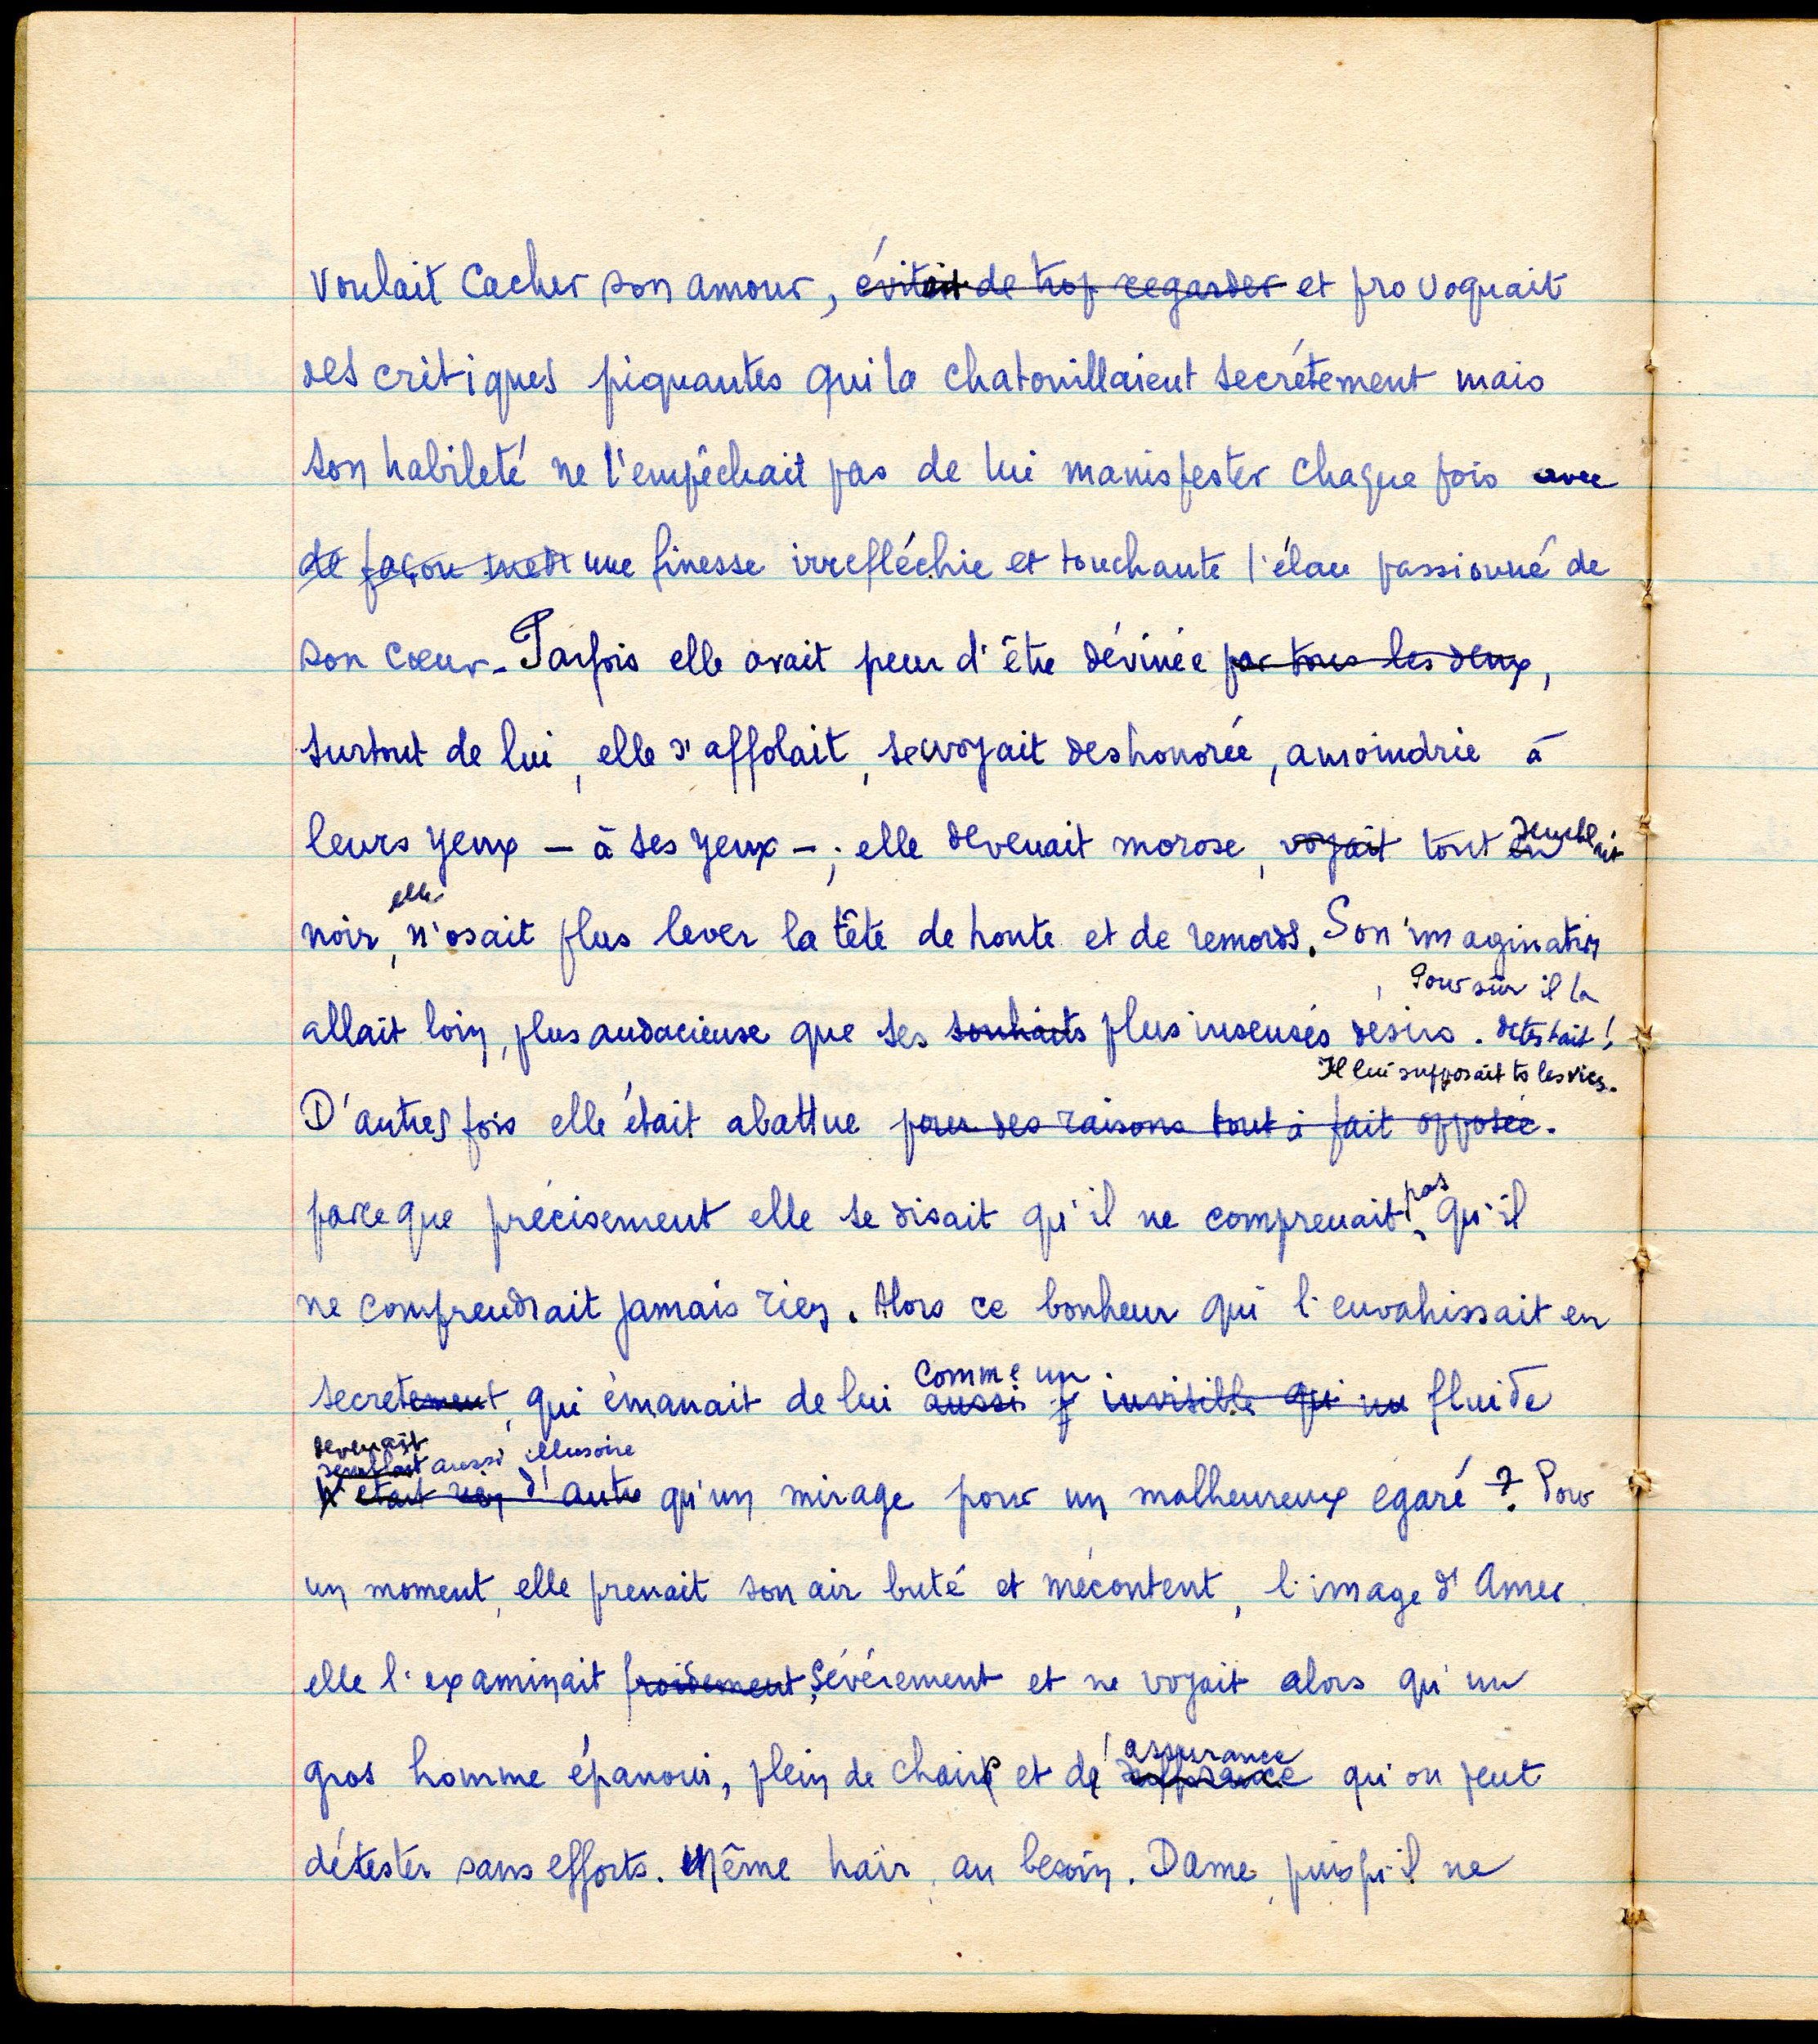 voulait cacher son amour, évitait de trop regarder et provoquait
des critiques piquantes qui la chatouillaient secrétement mais
son habileté ne l'empêchait pas de lui manisfester chaque fois avec
de façon une finesse irrefléchie et touchante l'élan passionné de
son cœur. Parfois elle avait peur d'être dévinée par tous les deux,
surtout de lui, elle s'affolait, se voyait deshonorée, amoindrie à
leurs yeux – à ses yeux – ; elle devenait morose, voyait tout en semblait
elle
noir, n'osait plus lever la tête de honte et de remords. Son imagination
Pour sûr il la
allait loin, plus audacieuse que ses souhaits plus insensés désirs. détestait!
Il lui supposait ts les vices.
D'autres fois elle était abattue pour des raisons tout à fait opposée.
parce que précisement elle se disait qu'il ne comprenait pas, qu'il
ne comprendrait jamais rien. Alors ce bonheur qui l'envahissait en
comme un
secretement, qui émanait de lui aussi invisible qui un fluide
devenait
semblait aussi illusoire
n'était rien d'autre qu'un mirage pour un malheureux egaré ? Pour
un moment, elle prenait son air buté et mécontent, l'image d'Amer
elle l'examinait froidement, sévérement et ne voyait alors qu'un
assurance
gros homme épanoui, plein de chair et d' suffisance qu'on peut
détester sans efforts. Même haïr, au besoin. Dame, puisqu'il ne